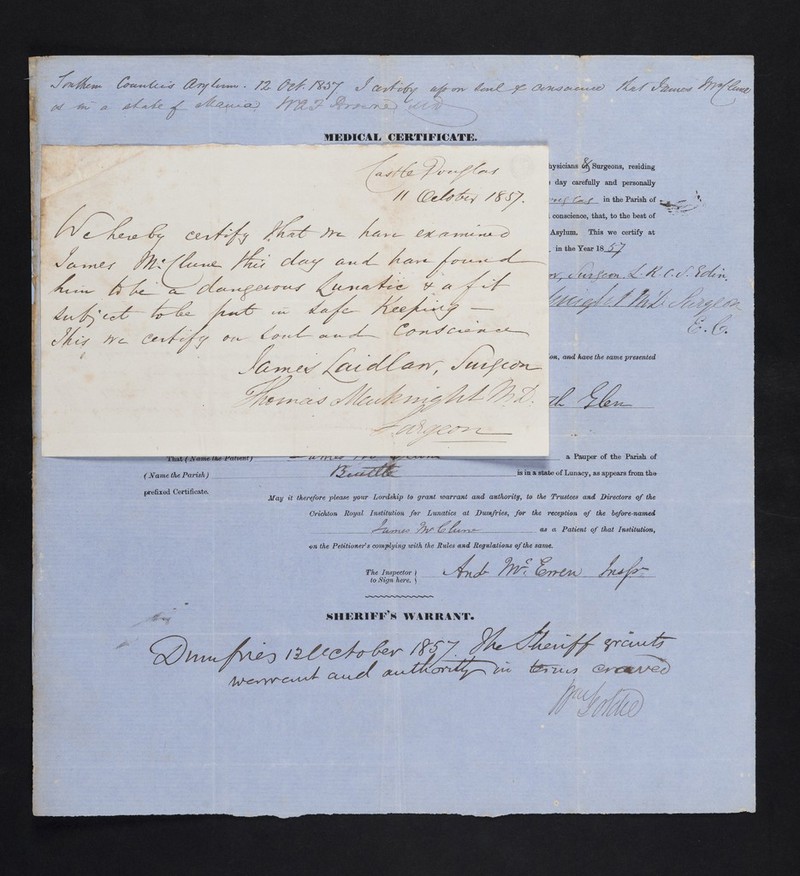 Southern Counties Asylum. 12 Oct. 1857 I certify upon soul & conscience that James McClune
is in a state of Mania. W A F Browne MD
MEDICAL CERTIFICATE.
Castle Douglas
11 October 1857.
We hereby certify that we have examined
James McClune this day and have found
him to be a dangerous Lunatic & a fit
subject to be put in safe Keeping –
This we certify on Soul and Conscience
James Laidlaw, Surgeon
Thomas Macknight M.D.
Surgeon
hysicians & Surgeons, residing
day carefully and personally
in the Parish of
conscience, that, to the best of
Asylum. This we certify at
in the Year 1857
Surgeon L.R.C.S. Edin.
knight M.D. Surgeon
E.C.
on, and have the same presented
th Glen
That (Name the Patient) James Mc a Pauper of the Parish of
(Name the Parish) Buittle is in a state of Lunacy, as appears from the
prefixed Certificate.
May it therefore please your Lordship to grant warrant and authority, to the Trustees and Directors of the
Crichton Royal Institution for Lunatics at Dumfries, for the reception of the before-named
James McClune as a Patient of that Institution,
on the Petitioner's complying with the Rules and Regulations of the same.
The Inspector to Sign here. And McEwen Inspr.
SHERIFF'S WARRANT.
Dumfries 12 October 1857. The Sheriff grants
warrant and authority in terms craved
Wm